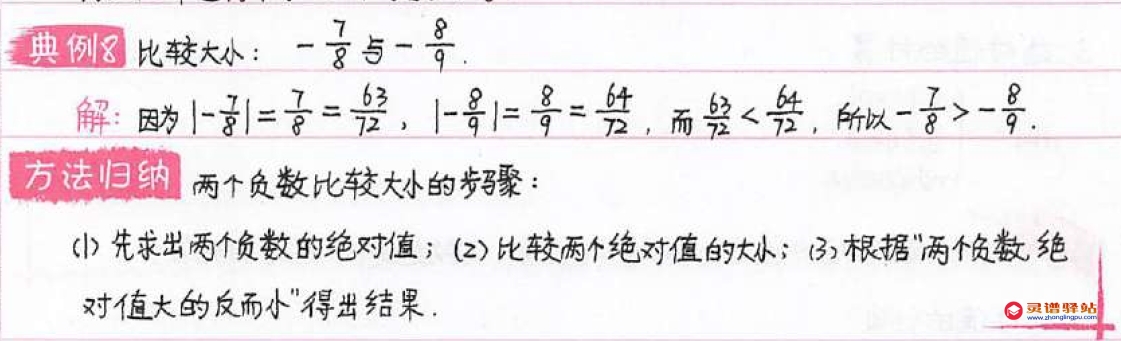 典例8 比较大小: -7/8 与 -8/9.
解: 因为|-7/8|=7/8=63/72, |-8/9|=8/9=64/72, 而63/72<64/72, 所以-7/8>-8/9.
方法归纳 两个负数比较大小的步骤:
(1) 先求出两个负数的绝对值; (2) 比较两个绝对值的大小; (3) 根据"两个负数,绝
对值大的反而小"得出结果.
灵谱驿站
www.zhonglingpu.com